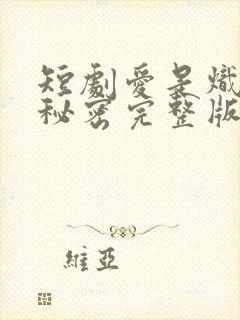 短劇愛是熾
秘密完整版
維亞